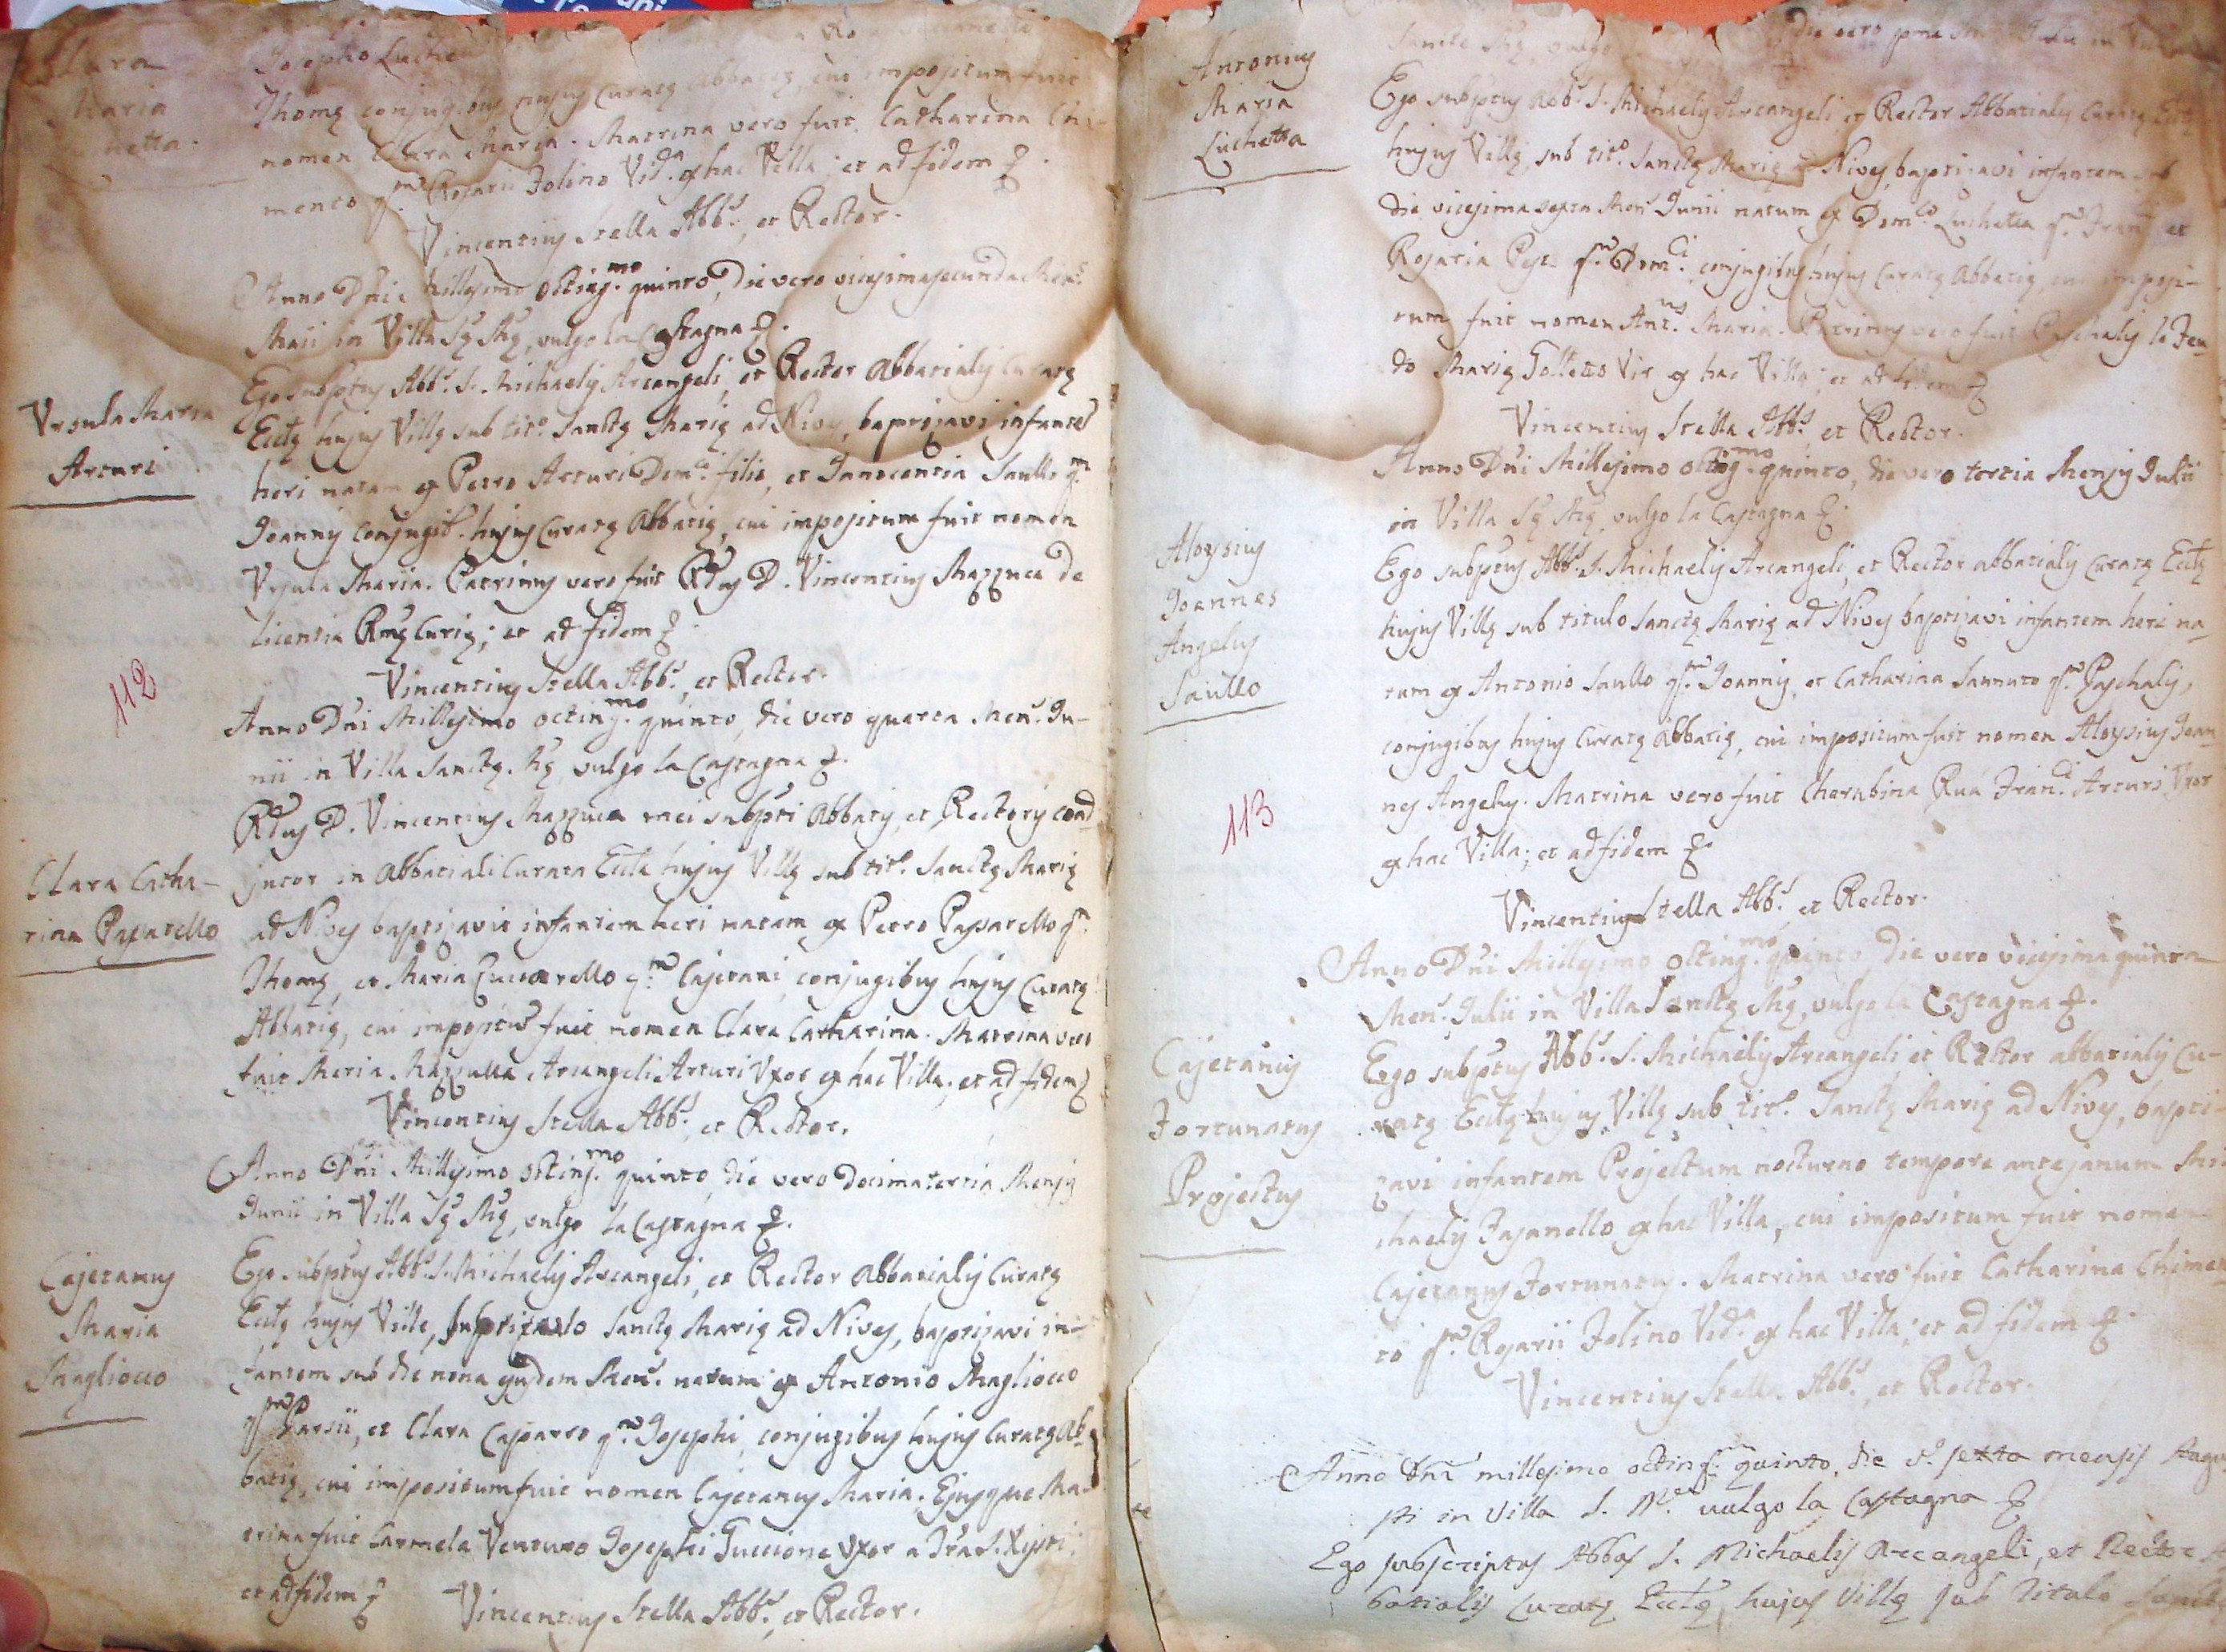 Clara
Maria
hetta.
Josepho Luche
Thomę conjugibus hujus Curatę Abbatię, cui impositum fuit
nomen Clara Maria. Matrina vero fuit Catharina Chi-
mento qm. Rosarii Folino Vid.a ex hac Villa; et ad fidem
Vincentius Stella Abb.s, et Rector.
Anno Dńi Millesimo octing.mo quinto, die vero vicesimasecunda Mens.
Maii in Villa Sę Mę, vulgo la Castagna
Ego subptus Abb.s S. Michaelis Arcangeli, et Rector Abbatialis Curatę
Ecclę hujus Villę sub tit.o Sanctę Marię ad Nives, baptizavi infantem
heri natam ex Petro Arturi Dom.ci filio, et Innocentia Saullo qm.
Joannis conjugib. hujus Curatę Abbatię, cui impositum fuit nomen
Ursula Maria. Patrinus vero fuit Rdus D. Vincentius Mazzuca de
licentia Rmę Curię; et ad fidem
Vincentius Stella Abb.s, et Rector.
Ursula Maria
Arturi
112
Anno Dńi Millesimo octing.mo quinto, die vero quarta Men.s Ju-
nii in Villa Sanctę Mę, vulgo la Castagna
Rdus D. Vincentius Mazzuca mei subpti Abbatis, et Rectoris coad-
jutor in Abbatiali Curata Eccla hujus Villę sub tit.o Sanctę Marię
ad Nives baptizavit infantem heri natam ex Petro Paparello qm.
Thomę, et Maria Cuccarello qm. Cajetani, conjugibus hujus Curatę
Abbatię, cui impositum fuit nomen Clara Catharina. Matrina vero
fuit Maria Mazzulla Arcangeli Arturi Uxor ex hac Villa; et ad fidem
Vincentius Stella Abb.s, et Rector.
Clara Catha-
rina Paparello
Anno Dńi Millesimo octing.mo quinto, die vero decimatertia Mensis
Junii in Villa Sę Mę, vulgo la Castagna
Ego subptus Abb.s S. Michaelis Arcangeli, et Rector Abbatialis Curatę
Ecclę hujus Villę, sub titulo Sanctę Marię ad Nives, baptizavi in-
fantem sub die nona ejusdem Men.s natum ex Antonio Magliocco
qm. et Clara Casparro qm. Josephi, conjugibus hujus Curatę Ab-
batię, cui impositum fuit nomen Cajetanus Maria. Ejusque Ma-
trina fuit Carmela Venturo Josephi Guccione Uxor a Tra S. Xysti;
et ad fidem
Vincentius Stella Abb.s, et Rector.
Cajetanus
Maria
Magliocco
die vero
Sancte Mę, vulgo
Ego subptus Abb.s S. Michaelis Arcangeli, et Rector Abbatialis Curatę Ecclę
hujus Villę, sub tit.o Sanctę Marię ad Nives, baptizavi infantem sub
die vicesimasexta Men.s Junii natum ex Dom.co Luchetta qm. Fran.ci et
Rosaria qm. Dom.ci conjugibus hujus Curatę Abbatię, cui imposi-
tum fuit nomen Ant.us Maria. Patrinus vero fuit Paschalis lo Feu-
do Marię Folletto Vir ex hac Villa; et ad fidem
Vincentius Stella Abb.s, et Rector.
Antonius
Maria
Luchetta
Anno Dńi Millesimo octing.mo quinto, die vero tertia Mensis Julii
in Villa Sę Mę, vulgo la Castagna
Ego subptus Abb.s S. Michaelis Arcangeli, et Rector abbatialis Curatę Ecclę
hujus Villę sub titulo Sanctę Marię ad Nives baptizavi infantem heri na-
tum ex Antonio Saullo qm. Joannis, et Catharina Sannuto qm. Paschalis,
conjugibus hujus Curatę Abbatię, cui impositum fuit nomen Aloysius Joan-
nes Angelus. Matrina vero fuit Cherubina Rua Fran.ci Arturi Uxor
ex hac Villa; et ad fidem
Vincentius Stella Abb.s et Rector.
Aloysius
Joannes
Angelus
Saullo
113
Anno Dńi Millesimo octing.mo quinto, die vero vicesimaquinta
Men.s Julii in Villa Sanctę Mę, vulgo la Castagna
Ego subptus Abb.s S. Michaelis Arcangeli, et Rector abbatialis Cu-
ratę Ecclę hujus Villę sub tit.o Sanctę Marię ad Nives, bapti-
zavi infantem Projectum nocturno tempore ante januam Mi-
chaelis Fasanello ex hac Villa, cui impositum fuit nomen
Cajetanus Fortunatus. Matrina vero fuit Catharina Chimen-
to qm. Rosarii Folino Vid.a ex hac Villa; et ad fidem
Vincentius Stella Abb.s, et Rector.
Cajetanus
Fortunatus
Projectus
Anno Dnī millesimo octing. quinto, die sexta mensis Augu-
sti in Villa S. M.e vulgo la Castagna
Ego subscriptus Abbas S. Michaelis Arcangeli, et Rector A
batialis Curatę Ecclę hujus Villę sub titulo Sanctę